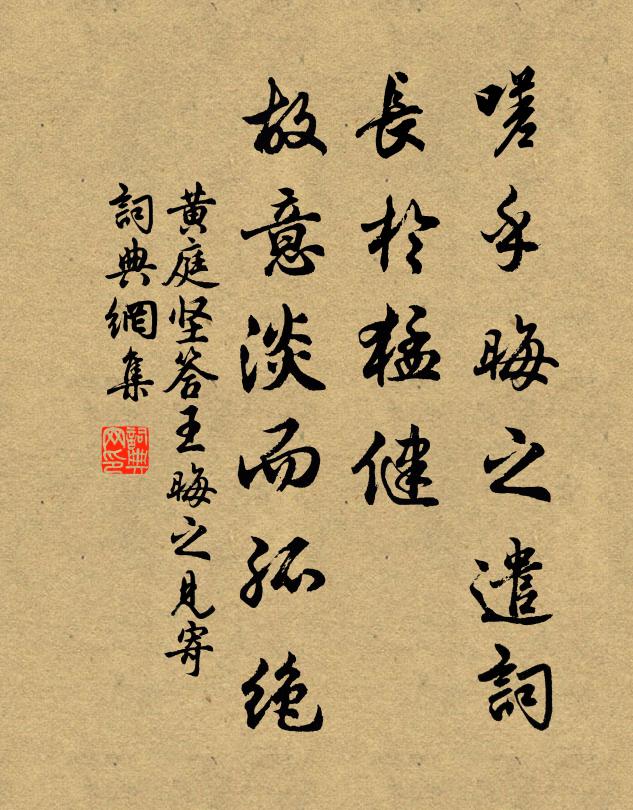 嗟乎晦之遣詞
長於猛健
故意淡而孤絶
黄庭坚答王晦之見寄
詞典網集
詞典網印